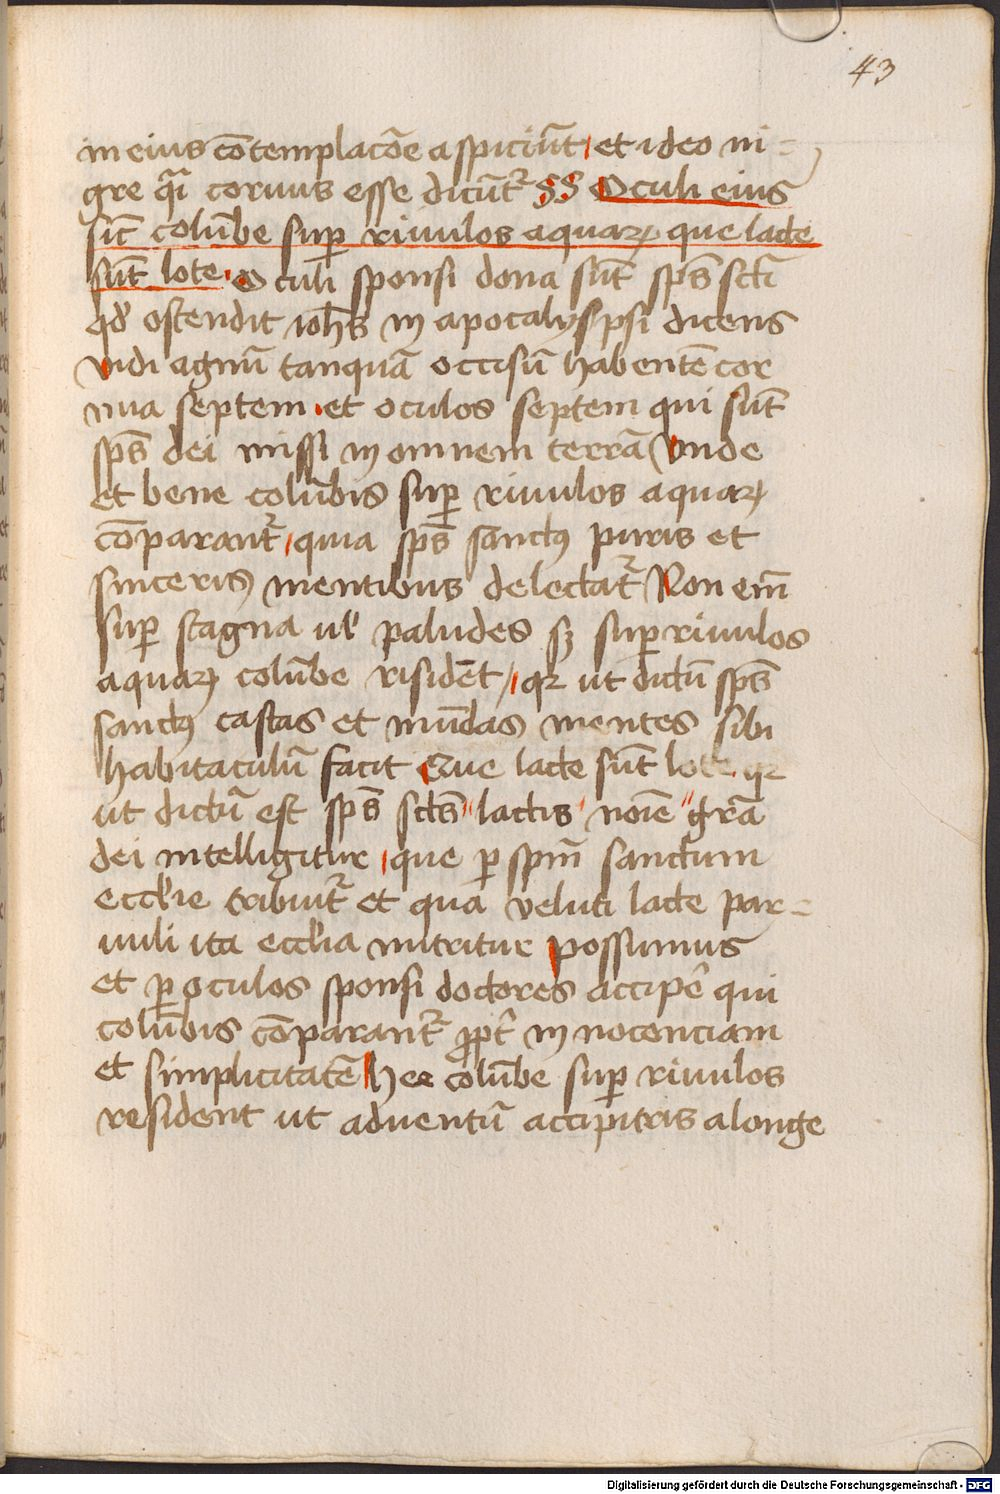 43
in eius cōtemplacōe aspiciūt et ideo ni=
gre qͣi coruus esse dicūtᷣ §§ Oculi eius
sic̄ colūbe suꝑ riuulos aquaꝝ que lacte
sūt lote. Oculi sponsi dona sūt sp̄s scti
qd̓ ostendit ioh̄s in apocalypsi dicens
vidi agnū tanquā occisū habentē cor
nua septem et oculos septem qui sūt
sp̄s dei missi in omnem terrā Vnde
et bene colūbis suꝑ riuulos aquaꝝ
cōparantᷣ quia sp̄s sanctꝰ puris et
sinceris mentibus delectatᷣ Non em̄
suꝑ stagna ul̓ paludes sꝫ suꝑ riuulos
aquaꝝ colūbe risidēt qꝛ ut dictū sp̄s
sanctꝰ castas et mūdas mentes sibi
habitaculū facit Que lacte sūt lote qꝛ
ut dictū est sp̄s sct̄s lactis noīe gr̄a
dei intelligitur que ꝑ spm̄ sanctum
eccl̓ie tribuitᷣ et qua veluti lacte par=
uuli ita eccl̓ia nutritur possumus
et ꝑ oculos sponsi doctores accipe᷒ qui
colūbis cōparantᷣ ꝓpt᷒ in nocenciam
et simplicitatē Hee colūbe suꝑ riuulos
resident ut aduentū accipitris a longe
Digitalisierung gefördert durch die Deutsche Forschungsgemeinschaft - DFG